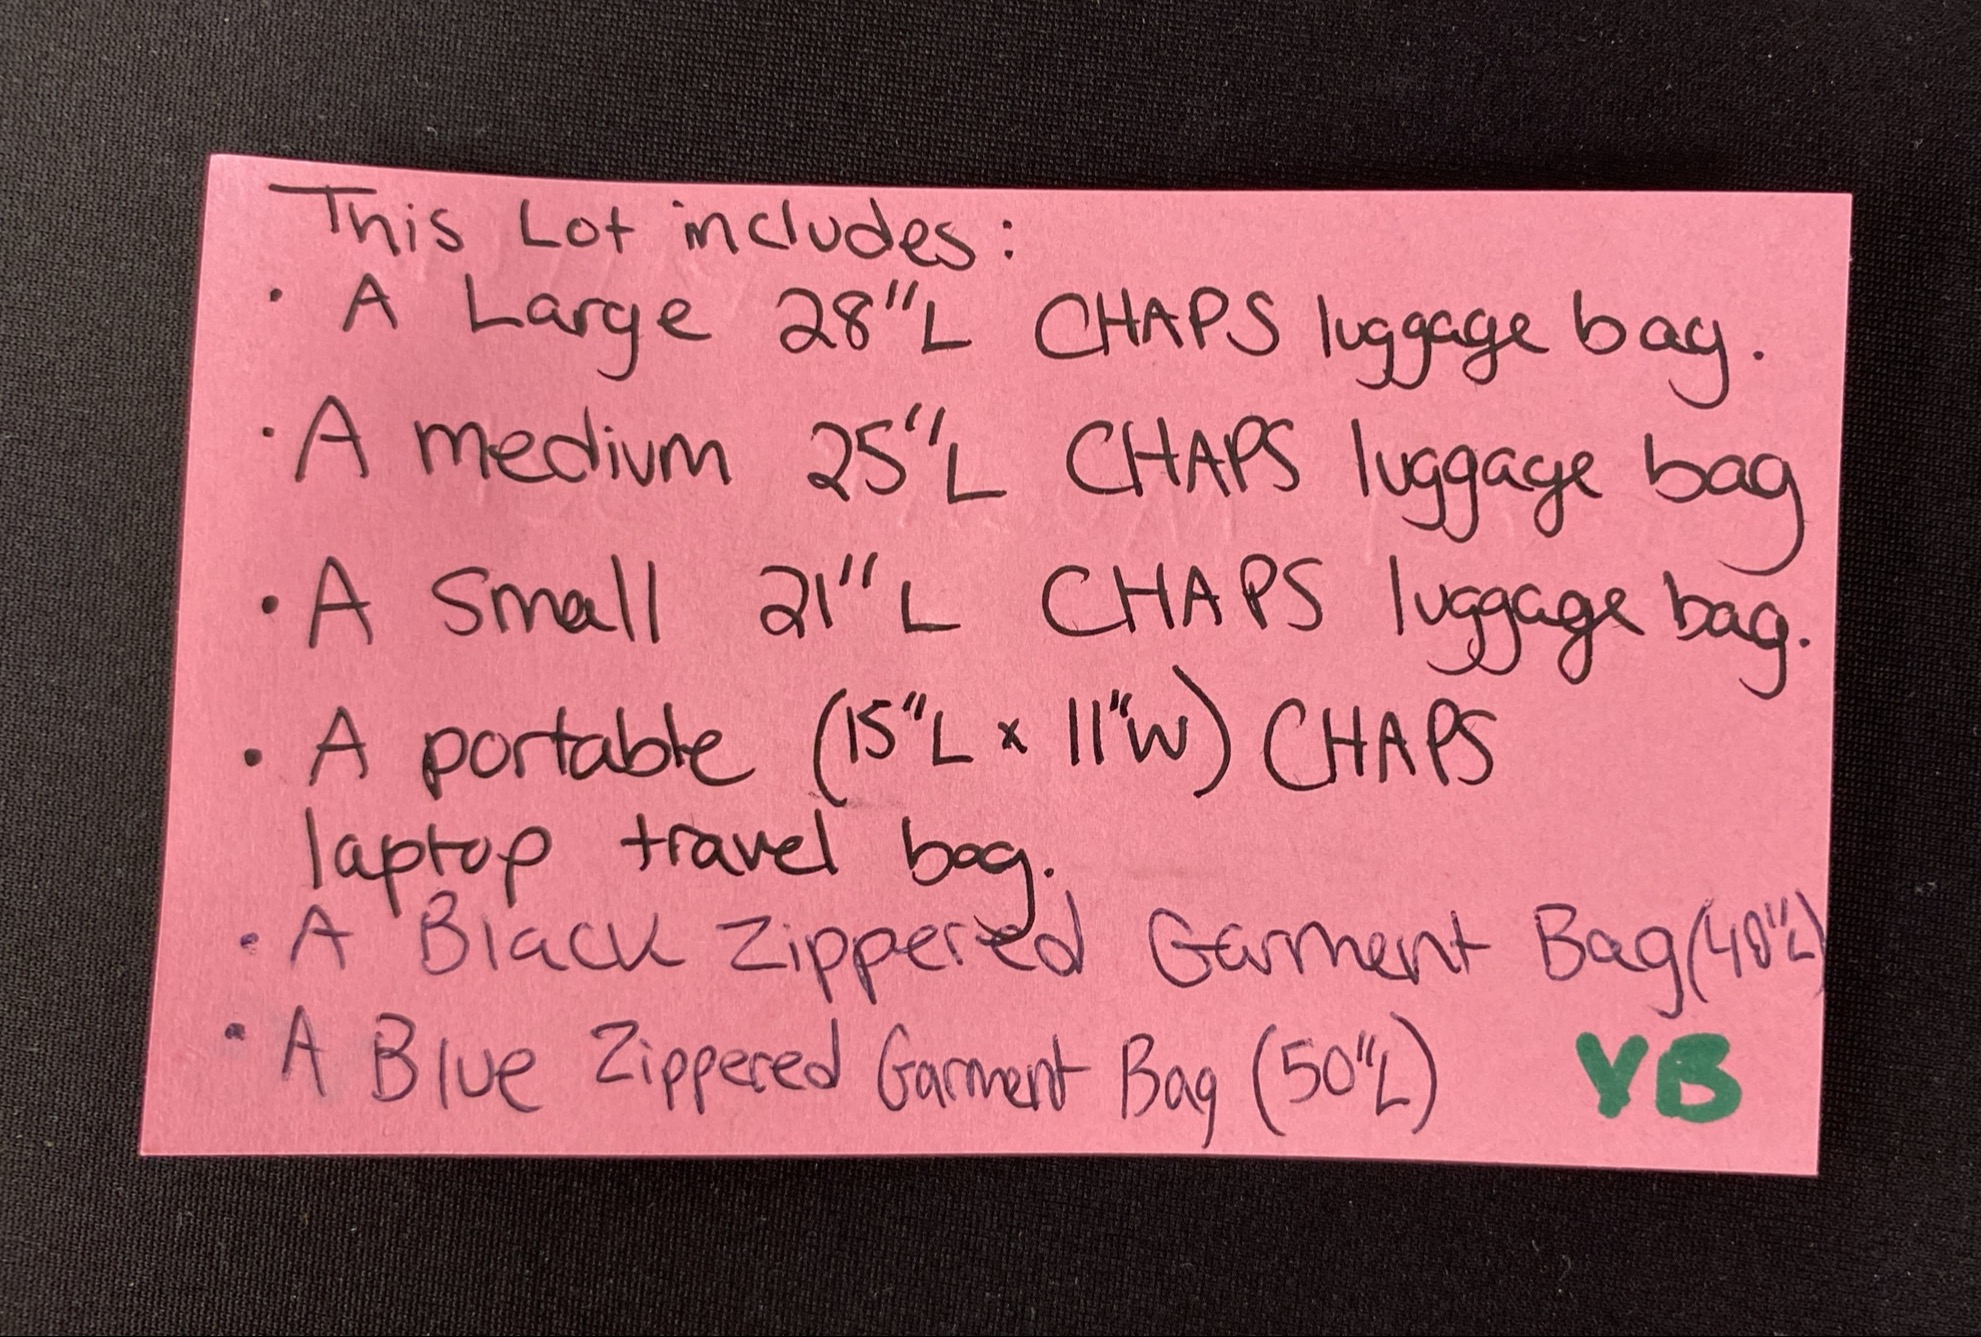 This Lot includes:
• A Large 28"L CHAPS luggage bag.
• A medium 25"L CHAPS luggage bag
• A Small 21"L CHAPS luggage bag.
• A portable (15"L x 11"W) CHAPS
laptop travel bag.
• A Black Zippered Garment Bag (40"L)
• A Blue Zippered Garment Bag (50"L)
YB